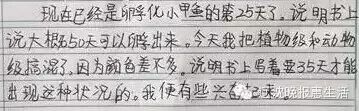 现在已经是孵化小甲鱼的第25天了。说明书上
说大概50天可以孵出来。今天我把植物级和动物
级搞混了。因为颜色差不多。说明书上写着要35天才能
出现这种状况的。我便有些兴奋起来